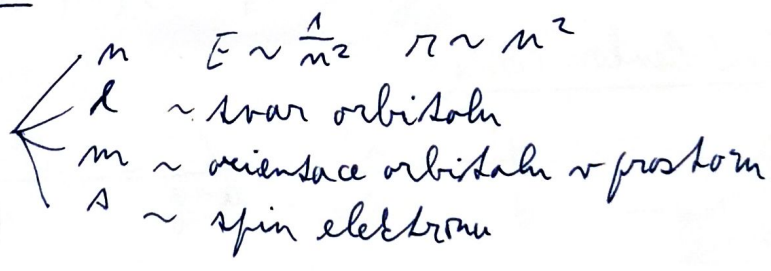 n E ~ 1/n² r ~ n²
l ~ tvar orbitalu
m ~ orientace orbitalu v prostoru
s ~ spin elektronu